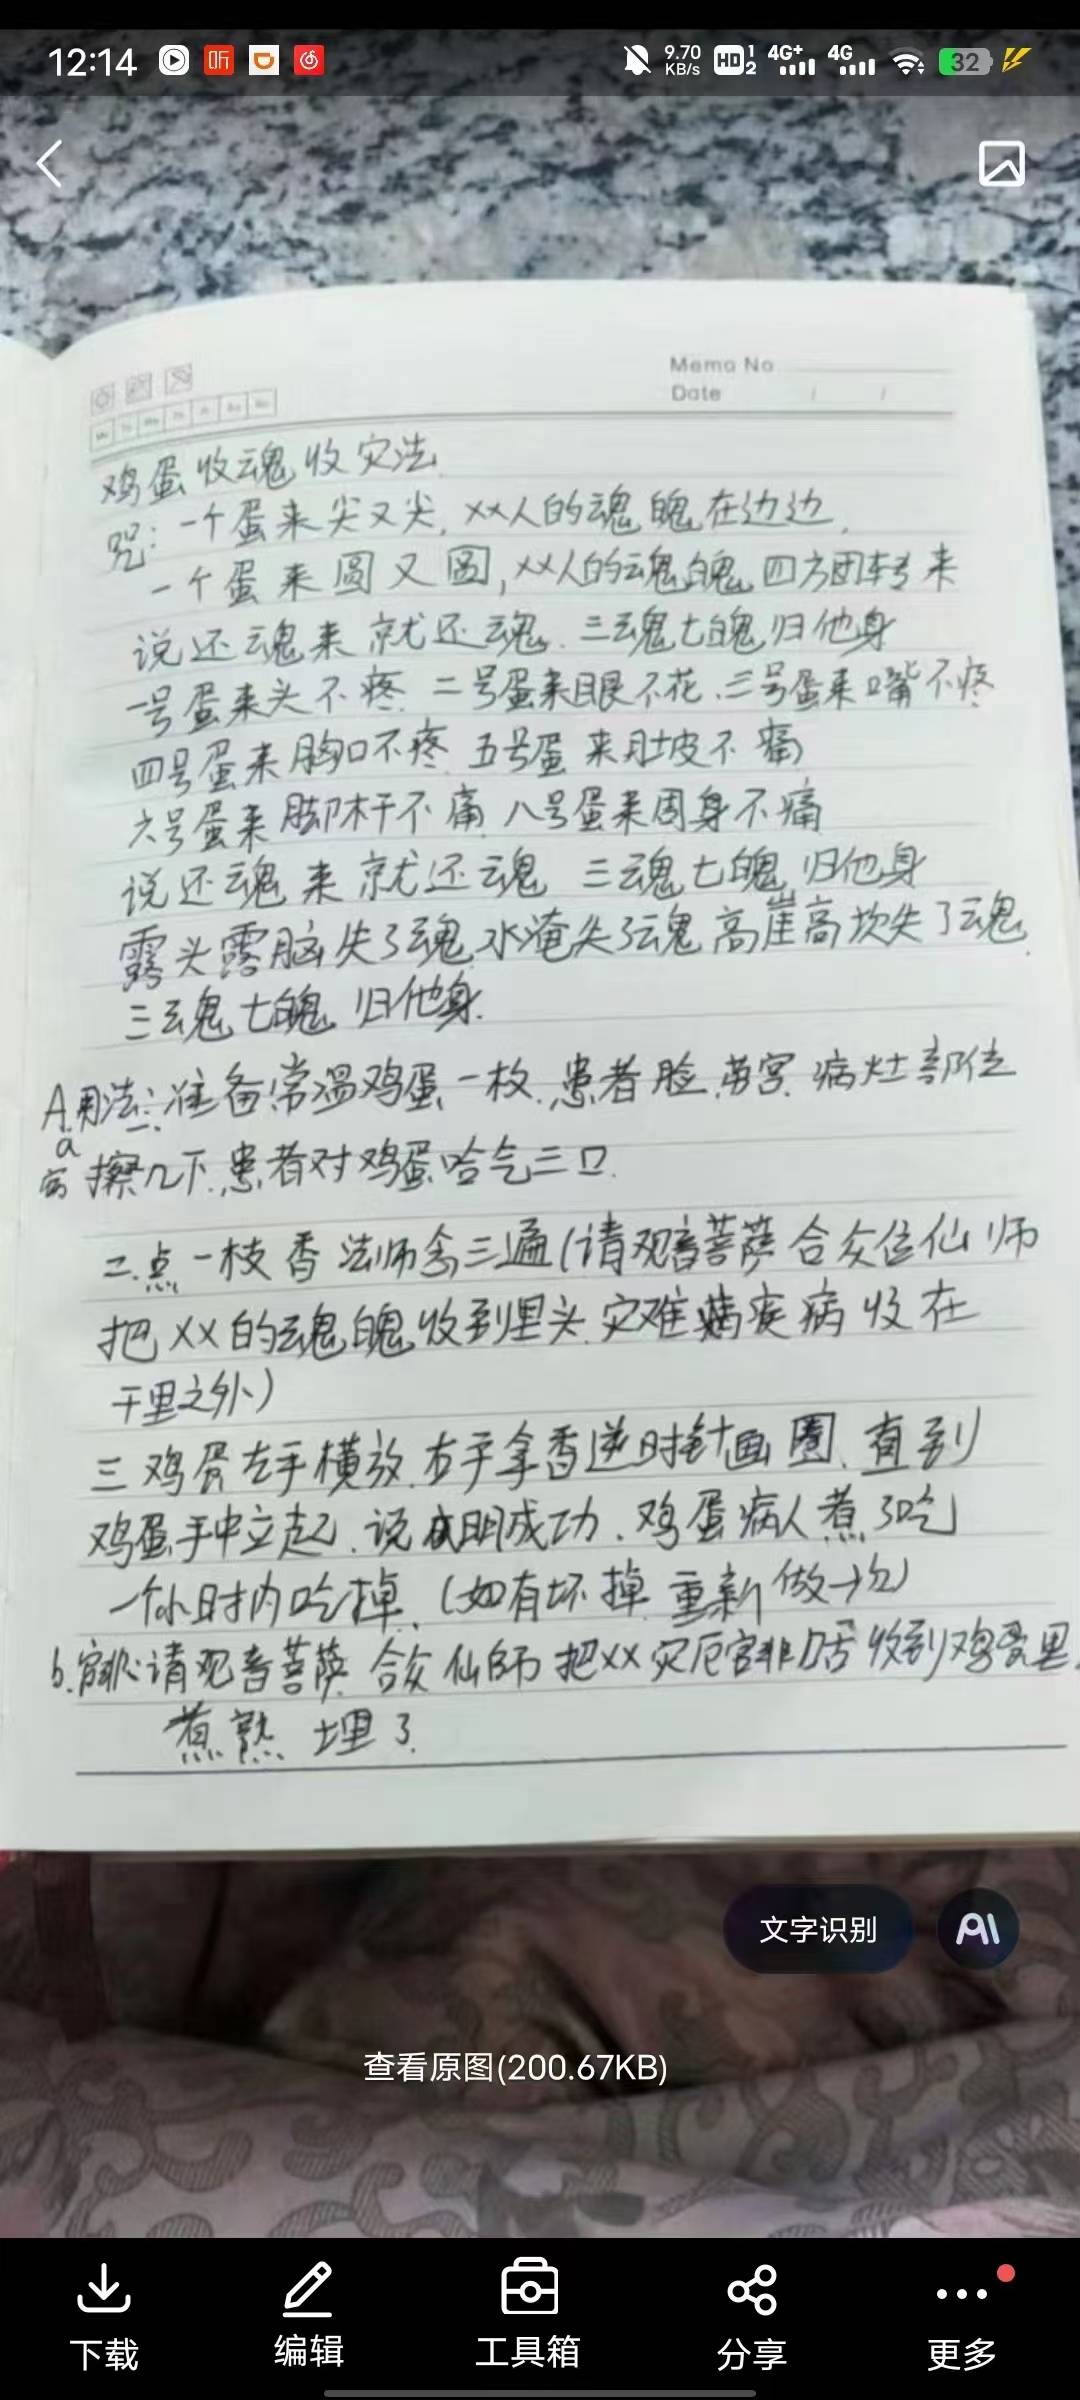 12:14
听
9.70 KB/s
HD 1 2
4G+
4G
32
Memo No
Date / /
鸡蛋收魂收灾法
咒:一个蛋来尖又尖,XX人的魂魄在边边,
一个蛋来圆又圆,XX人的魂魄四方团转来
说还魂来就还魂.三魂七魄归他身
一号蛋来头不疼.二号蛋来眼不花.三号蛋来嘴不疼
四号蛋来胸口不疼 五号蛋来肚皮不痛
六号蛋来脚杆不痛 八号蛋来周身不痛
说还魂来就还魂 三魂七魄归他身
露头露脑失了魂 水淹失了魂 高崖高坎失了魂.
三魂七魄归他身.
A.用法:一.准备常温鸡蛋一枚.患者脸.劳宫.病灶部位
a
擦几下.患者对鸡蛋哈气三口.
二.点一枝香 法师念三遍(请观音菩萨合众位仙师
把XX的魂魄收到里头.灾难疾病收在
千里之外)
三 鸡蛋左手横放.右手拿香逆时针画圈.直到
鸡蛋手中立起.说明成功.鸡蛋病人煮了吃
一个小时内吃掉.(如有坏掉 重新做一次)
b.请观音菩萨 合众仙师把XX灾厄官非口舌收到鸡蛋里.
煮熟 埋了.
文字识别
AI
查看原图(200.67KB)
下载
编辑
工具箱
分享
更多